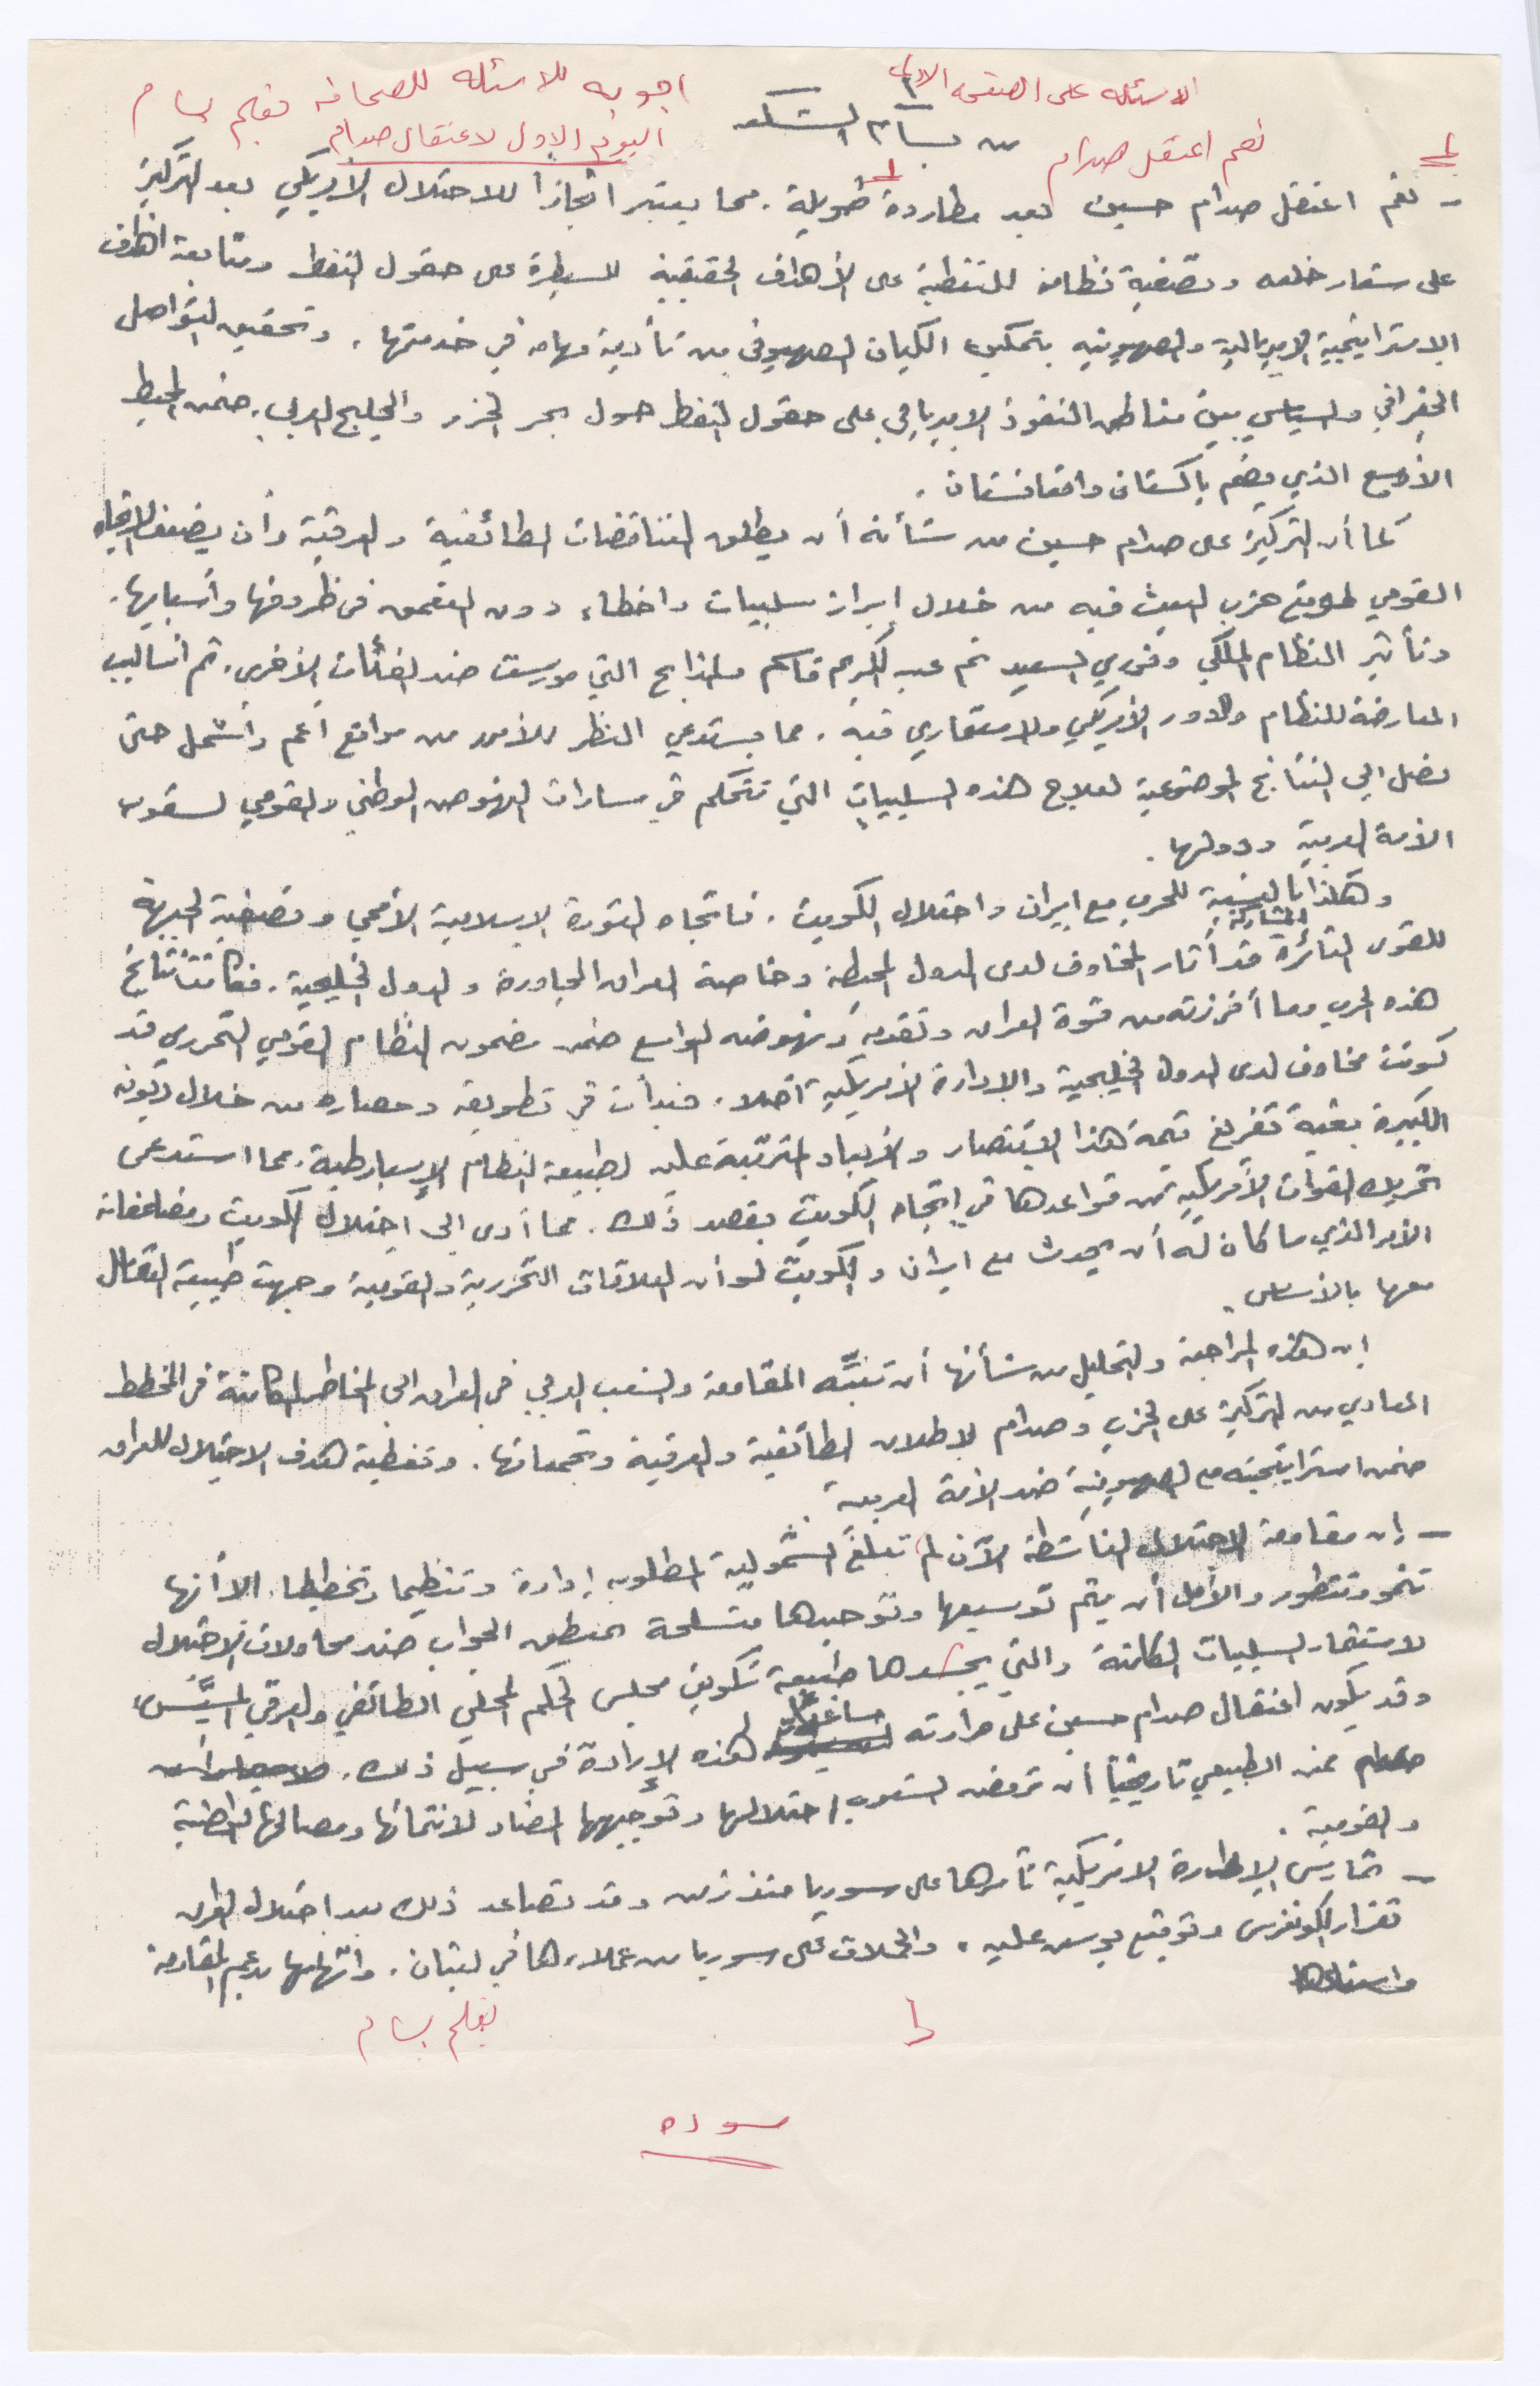 الاسئله على الصفحه الاولى
اجوبه للاسئله للصحافه بقلم بسام
من بسام الشكعه
اليوم الاول لاعتقال صدام
نعم اعتقل صدام
- نعم اعتقل صدام حسين بعد مطاردة طويلة. مما يعتبر انجازاً للاحتلال الأمريكي بعد التركيز
على شعار خلعه وتصفية نظامه للتغطية على الأهداف الحقيقية للسيطرة على حقول النفط ومتابعة اهداف
الاستراتيجية الامبريالية والصهيونيه بتمكين الكيان الصهيوني من تأدية مهامه في خدمتها. وتحقيق التواصل
الجغرافي والسياسي بين مناطق النفوذ الامبريالي على حقول النفط حول بحر الخزر والخليج العربي. ضمن المحيط
الأوسع الذي يضم باكستان وافغانستان.
كما أن التركيز على صدام حسين من شأنه أن يطلق التناقضات الطائفية والعرقية وأن يضعف الاتجاه
القومي لموقع حزب البعث فيه من خلال إبراز سلبيات واخطاء دون التعمق في ظروفها وأسبابها.
وتأثير النظام الملكي ونوري السعيد ثم عبد الكريم قاسم والمذابح التي مورست ضد الفئات الأخرى. ثم أساليب
المعارضة للنظام والدور الأمريكي والاستعماري فيه. مما يستدعي النظر للأمور من مواقع أعم وأشمل حتى
نصل الى النتائج الموضوعية لعلاج هذه السلبيات التي تتحكم في مسارات النهوض الوطني والقومي لشعوب
الأمة العربية ودولها.
وهكذا بالنسبة للحرب مع ايران واحتلال الكويت. فاتجاه الثورة الاسلامية الأممي وتصفية الجبهة المشاركة
للقوى الثائرة قد أثار المخاوف لدى الدول المحيطة وخاصة العراق المجاورة والدول الخليجية. فكانت نتائج
هذه الحرب وما أفرزته من قوة العراق وتقدمه ونهوضه الواسع ضمن مضمون النظام القومي التحرري قد
كونت مخاوف لدى الدول الخليجية والإدارة الأمريكية أصلا. فبدأت في تطويقه وحصاره من خلال ديونه
الكبيرة بغية تفريغ قيمة هذا الانتصار والأبعاد المترتبة عليه لطبيعة النظام الإسبارطية. مما استدعى
تحريك القوات الأمريكية من قواعدها في اتجاه الكويت بقصد ذلك. مما أدى الى احتلال الكويت ومضاعفاته
الأمر الذي ما كان له أن يحدث مع ايران والكويت لو أن العلاقات التحررية والقومية وجهت طبيعة التعامل
معها بالأساس.
إن هذه المراجعة والتحليل من شأنها أن تنبّه المقاومة والشعب العربي في العراق الى المخاطر الكامنة في المخطط
المعادي من التركيز على الحزب وصدام لإطلاق الطائفية والعرقية وتجمعاتها. وتغطية هدف الاحتلال للعراق
ضمن استراتيجيته مع الصهيونية ضد الأمة العربية.
- إن مقاومة الاحتلال الناشطة الآن لم تبلغ الشمولية المطلوبه إدارة وتنظيما وتخطيطا. الا أنها
تنمو وتتطور والأمل أن يتم توسيعها وتوحيدها متسلحة بمنطق الجواب ضد محاولات الاحتلال
لاستثمار السلبيات الكامنة والتي يجسدها طبيعة تكوين مجلس الحكم المحلي الطائفي والعرقي المسيّس.
وقد يكون اعتقال صدام حسين على مرارته مساعداً لهذه الإرادة في سبيل ذلك.
فمن الطبيعي تاريخياً أن ترفض الشعوب احتلالها وتوجيهها المضاد لانتمائها ومصالحها الوطنية
والقومية.
- تمارس الإدارة الامريكية تآمرها على سوريا منذ زمن وقد تصاعد ذلك بعد احتلال العراق
بقرار الكونغرس وتوقيع بوش عليه. والحملات على سوريا من عملاءها في لبنان. واتهامها بدعم المقاومة
بقلم بسام
سوده